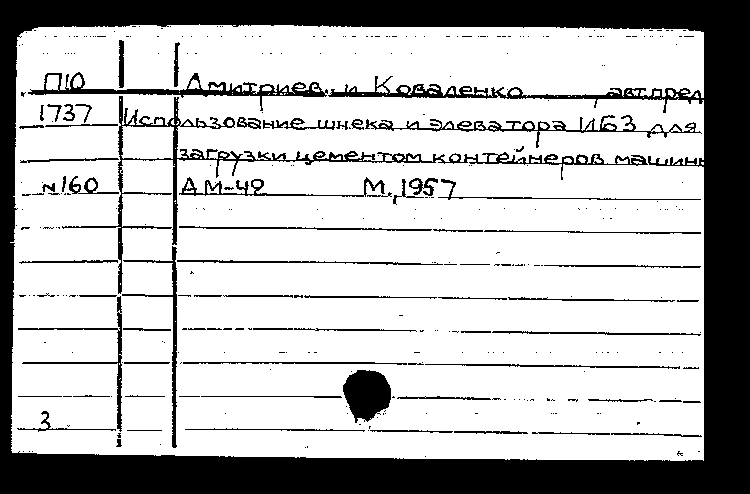 П10 Дмитриев и Коваленко, авт.пред
1737 Использование шнека и элеватора ИБЗ для
загрузки цементом контейнеров машины
№160 ДМ-42 М.,1957
3